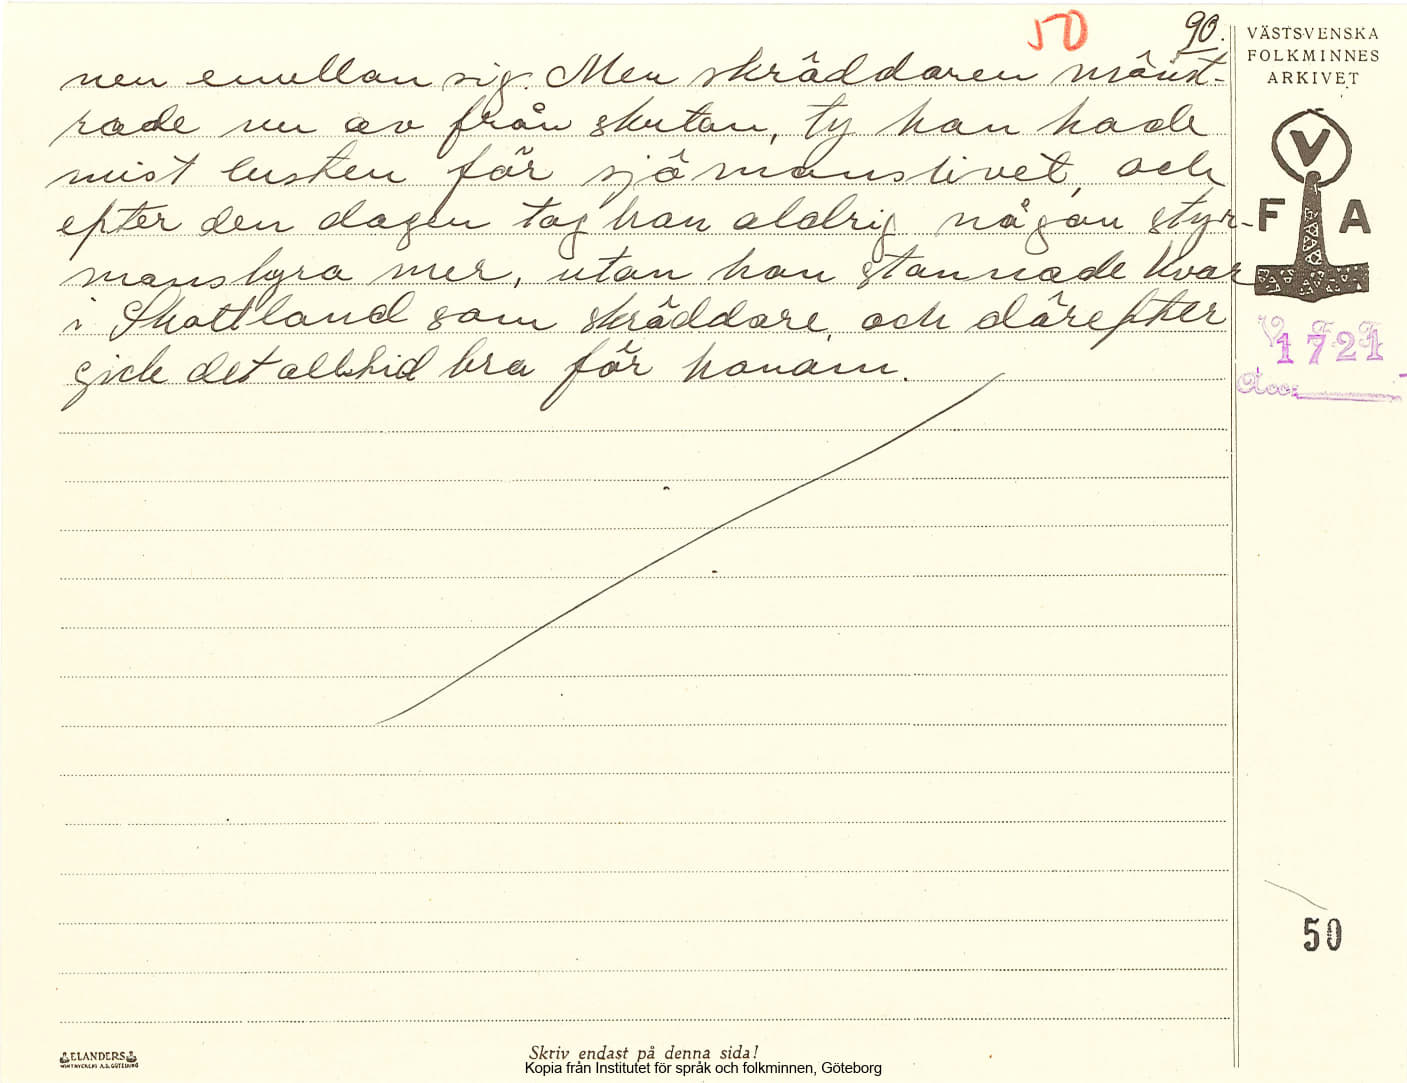 50
90.
VÄSTSVENSKA
FOLKMINNES
ARKIVET
nen emellan sig. Men skräddaren mönst-
rade nu av från skutan, ty han hade
mist lusten för sjömanslivet, och
efter den dagen tog han aldrig någon styr-
manshyra mer, utan han stannade kvar
i Skottland som skräddare, och därefter
gick det alltid bra för honom.
V
F A
V F F
1721
Acc:
50
ELANDERS
Skriv endast på denna sida!
Kopia från Institutet för språk och folkminnen, Göteborg